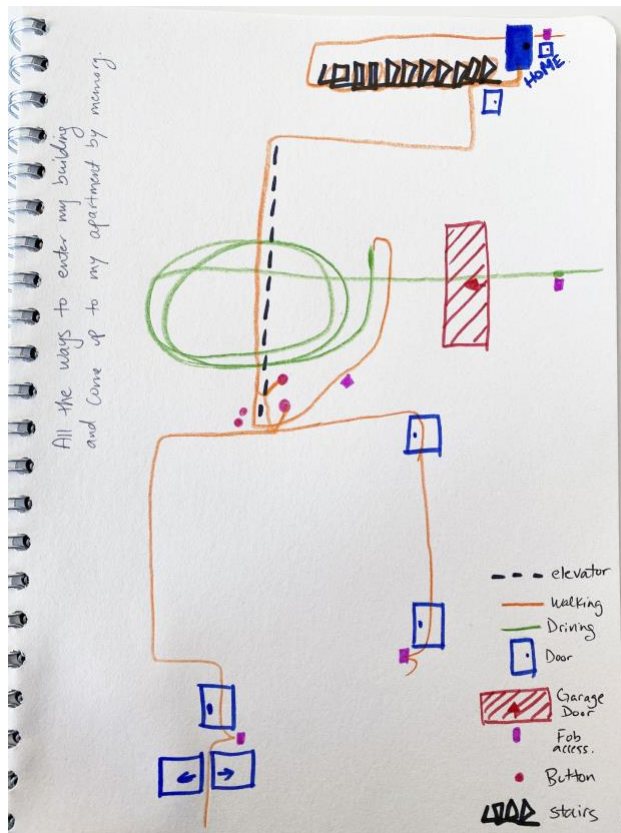 All the ways to enter my building
and come up to my apartment by memory.
HOME
elevator
Walking
Driving
Door
Garage
Door
Fob
access.
Button
stairs